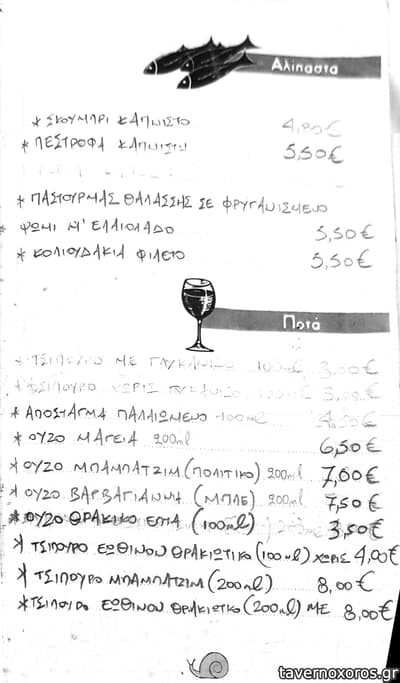 Αλίπαστα
* ΣΚΟΥΜΠΡΙ ΚΑΠΝΙΣΤΟ 4,80€
* ΠΕΣΤΡΟΦΑ ΚΑΠΝΙΣΤΗ 5,50€
* ΠΑΣΤΟΥΡΜΑΣ ΘΑΛΑΣΣΗΣ ΣΕ ΦΡΥΓΑΝΙΣΜΕΝΟ
* ΨΩΜΙ Μ' ΕΛΑΙΟΛΑΔΟ 5,50€
* ΚΟΛΙΟΥΔΑΚΙΑ ΦΙΛΕΤΟ 5,50€
Ποτά
* ΤΣΙΠΟΥΡΟ ΜΕ ΓΛΥΚΑΝΙΣΟ 100ml 3,00€
* ΤΣΙΠΟΥΡΟ ΧΩΡΙΣ ΓΛΥΚΑΝΙΣΟ 100ml 3,00€
* ΑΠΟΣΤΑΓΜΑ ΠΑΛΑΙΩΜΕΝΟ 100ml 4,50€
* ΟΥΖΟ ΜΑΓΕΙΑ 200ml 6,50€
* ΟΥΖΟ ΜΠΑΜΠΑΤΖΙΜ (ΠΟΛΙΤΙΚΟ) 200ml 7,00€
* ΟΥΖΟ ΒΑΡΒΑΓΙΑΝΝΗ (ΜΠΛΕ) 200ml 7,50€
* ΟΥΖΟ ΘΡΑΚΙΚΟ ΕΠΤΑ (100ml) 3,50€
* ΤΣΙΠΟΥΡΟ ΕΩΘΙΝΟΝ ΘΡΑΚΙΩΤΙΚΟ (100ml) ΧΩΡΙΣ 4,00€
* ΤΣΙΠΟΥΡΟ ΜΠΑΜΠΑΤΖΙΜ (200ml) 8,00€
* ΤΣΙΠΟΥΡΟ ΕΩΘΙΝΟΝ ΘΡΑΚΙΩΤΚΟ (200ml) ΜΕ 8,00€
tavernoxoros.gr